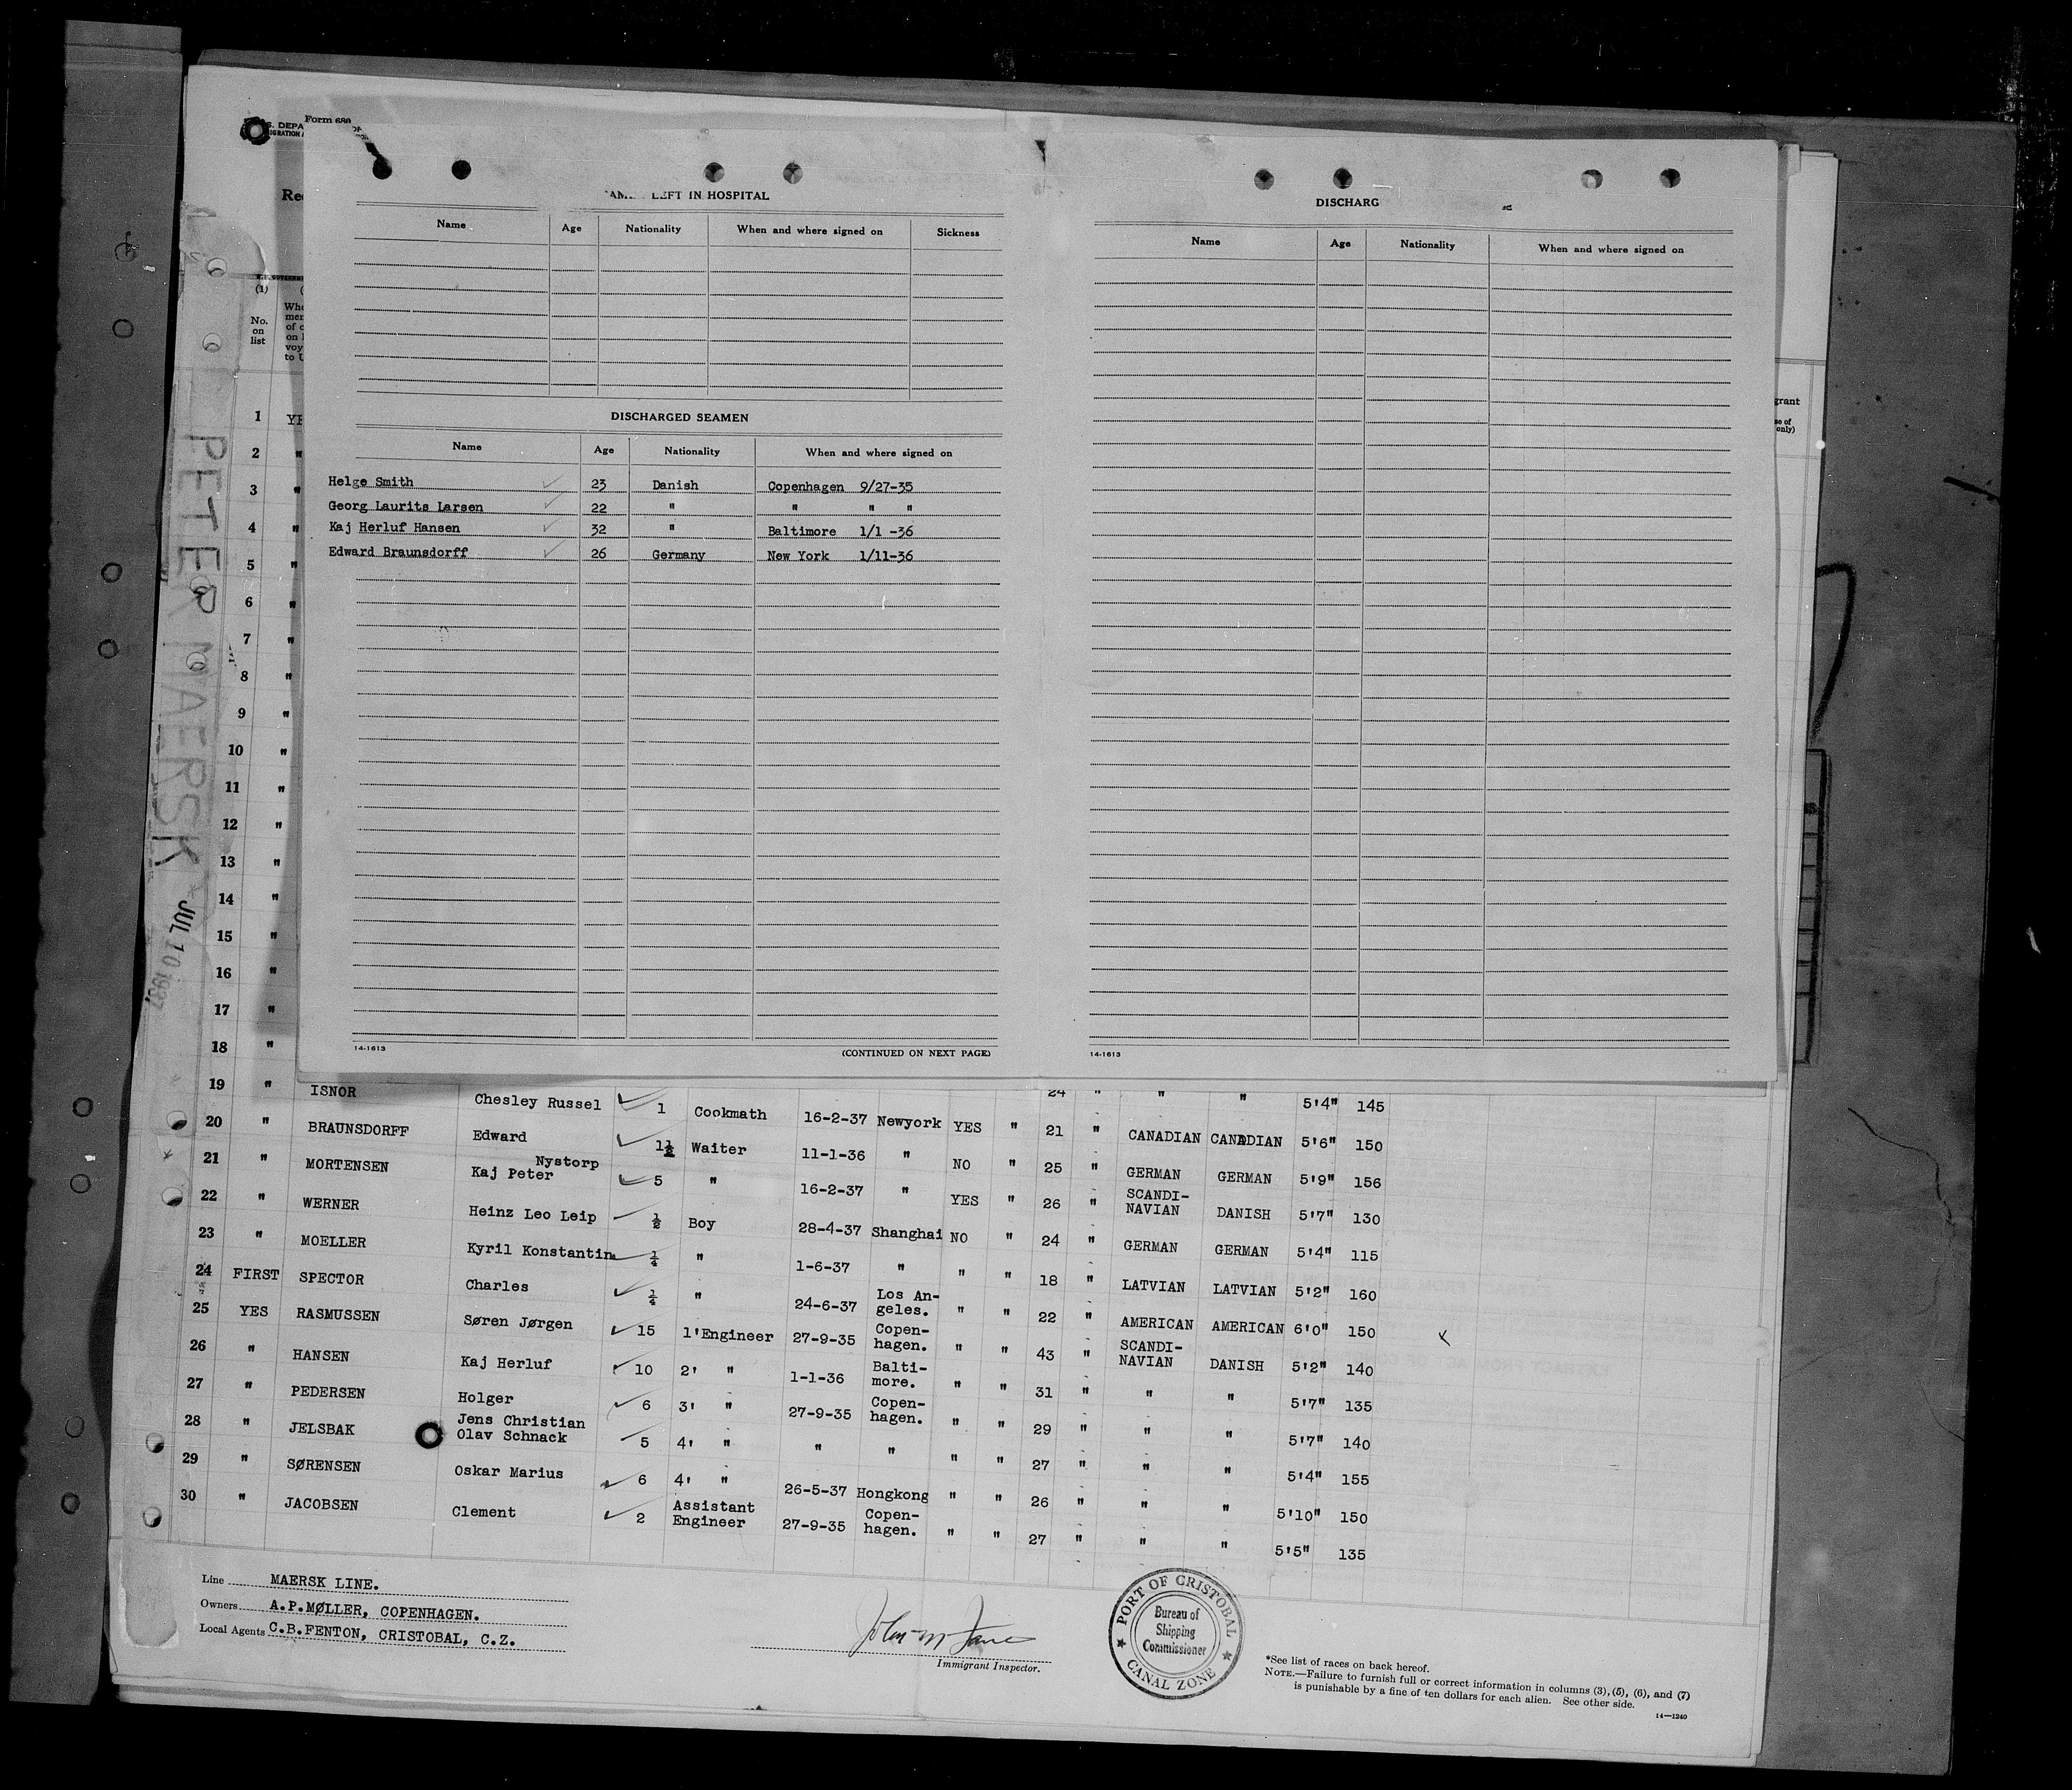 Form 689
S. DEPA
Rec
(1)
No.
on
list
AM LEFT IN HOSPITAL
Name Age Nationality When and where signed on Sickness
DISCHARGED SEAMEN
Name Age Nationality When and where signed on
Helge Smith 23 Danish Copenhagen 9/27-35
Georg Laurits Larsen 22 " " " "
Kaj Herluf Hansen 32 " Baltimore 1/1 -36
Edward Braunsdorff 26 Germany New York 1/11-36
14-1613 (CONTINUED ON NEXT PAGE)
DISCHARG
Name Age Nationality When and where signed on
14-1613
grant
only)
PETER MAERSK
JUL 10 1937
1 YE
2 "
3 "
4 "
5 "
6 "
7 "
8 "
9 "
10 "
11 "
12 "
13 "
14 "
15 "
16 "
17 "
18 "
19 " ISNOR Chesley Russel 1 Cookmath 16-2-37 Newyork YES " 21 " CANADIAN CANADIAN 5'6" 150
20 " BRAUNSDORFF Edward 1½ Waiter 11-1-36 " NO " 25 " GERMAN GERMAN 5'9" 156
21 " MORTENSEN Nystorp
Kaj Peter 5 " 16-2-37 " YES " 26 " SCANDI-
NAVIAN DANISH 5'7" 130
22 " WERNER Heinz Leo Leip ½ Boy 28-4-37 Shanghai NO " 24 " GERMAN GERMAN 5'4" 115
23 " MOELLER Kyril Konstantin ¼ " 1-6-37 " " " 18 " LATVIAN LATVIAN 5'2" 160
24 FIRST SPECTOR Charles ¼ " 24-6-37 Los An-
geles. " " 22 " AMERICAN AMERICAN 6'0" 150
25 YES RASMUSSEN Søren Jørgen 15 1'Engineer 27-9-35 Copen-
hagen. " " 43 " SCANDI-
NAVIAN DANISH 5'2" 140
26 " HANSEN Kaj Herluf 10 2' " 1-1-36 Balti-
more. " " 31 " " " 5'7" 135
27 " PEDERSEN Holger 6 3' " 27-9-35 Copen-
hagen. " " 29 " " " 5'7" 140
28 " JELSBAK Jens Christian
Olav Schnack 5 4' " " " " " 27 " " " 5'4" 155
29 " SØRENSEN Oskar Marius 6 4' " 26-5-37 Hongkong " " 26 " " " 5'10" 150
30 " JACOBSEN Clement 2 Assistant
Engineer 27-9-35 Copen-
hagen. " " 27 " " " 5'5" 135
24 " " " 5'4" 145
Line MAERSK LINE.
Owners A.P.MØLLER, COPENHAGEN.
Local Agents C.B.FENTON, CRISTOBAL, C.Z.
Immigrant Inspector.
PORT OF CRISTOBAL
Bureau of
Shipping
Commissioner
CANAL ZONE
*See list of races on back hereof.
NOTE.—Failure to furnish full or correct information in columns (3), (5), (6), and (7)
is punishable by a fine of ten dollars for each alien. See other side.
14—1240